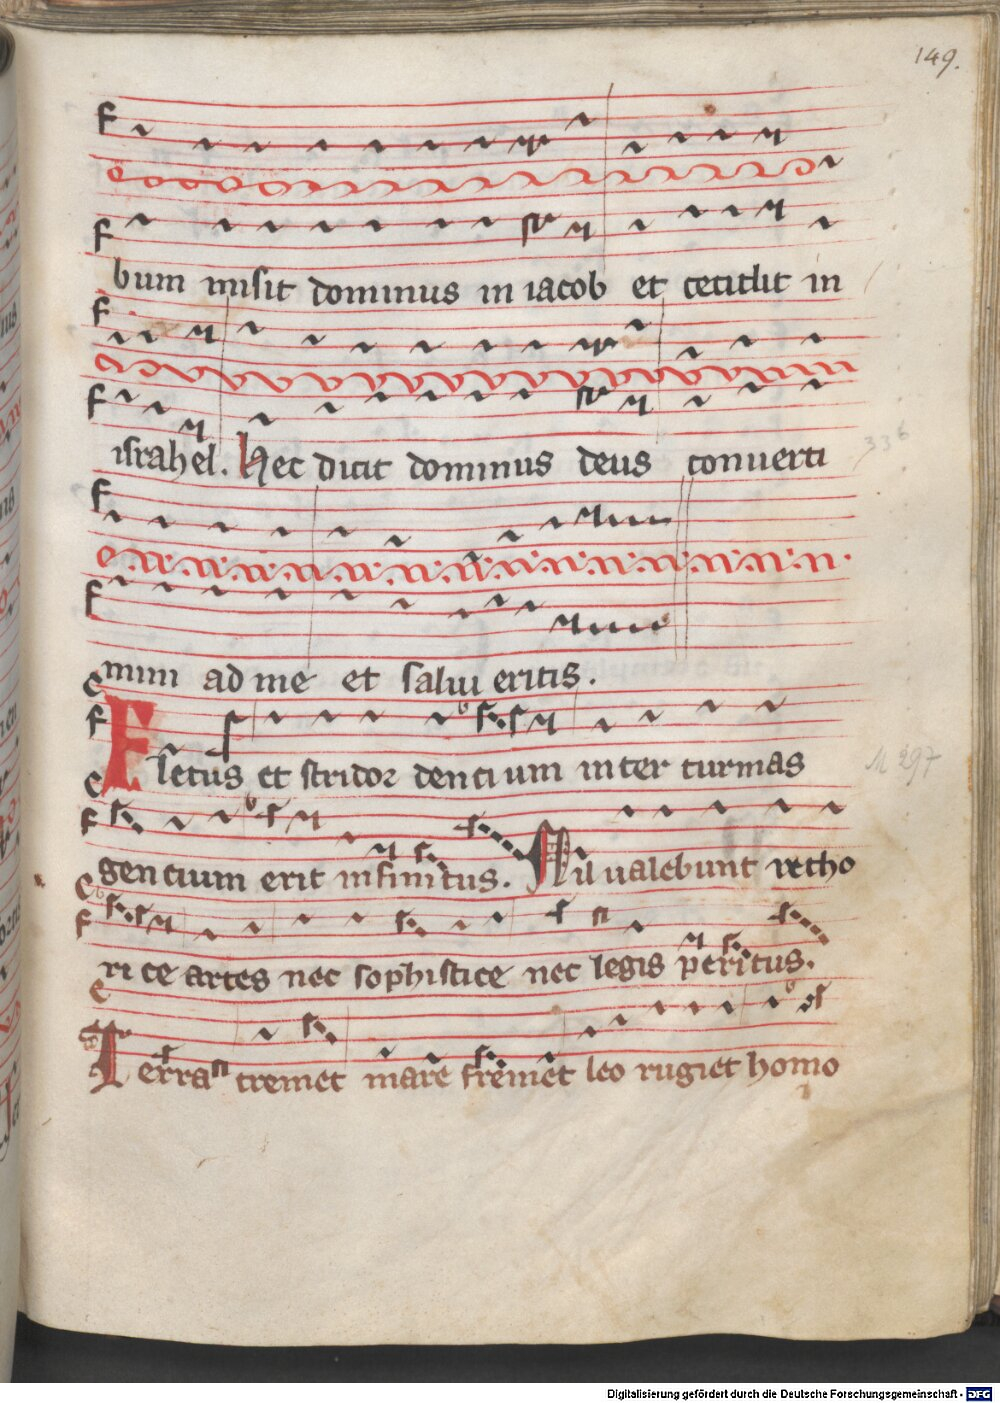 149.
bum misit dominus in iacob et cecidit in
israhel. Hec dicit dominus deus conuerti
336
mini ad me et salui eritis.
Fletus et stridor dencium inter turmas
M 297
gencium erit infinitus. Nil ualebunt retho
rice artes nec sophistice nec legis peritus.
Terra tremet mare fremet leo rugiet homo
Digitalisierung gefördert durch die Deutsche Forschungsgemeinschaft - DFG